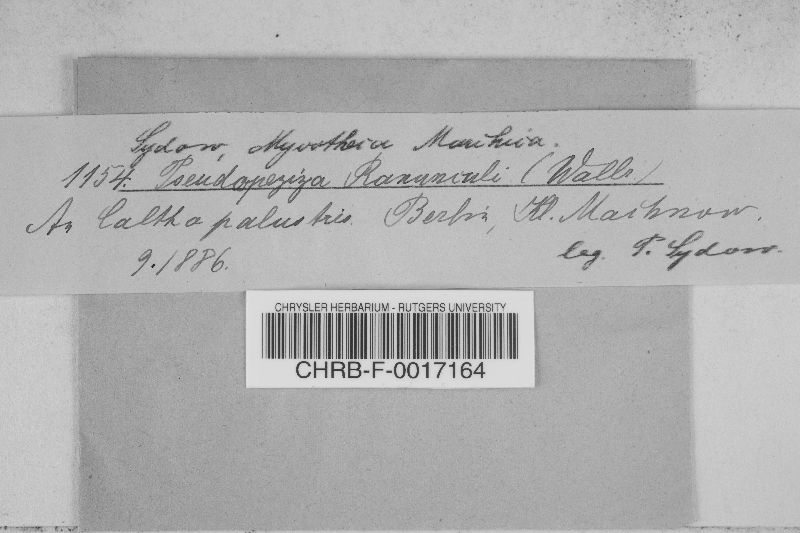 Sydow, Mycotheca Marchica.
1154. Pseudopeziza Ranunculi (Wallr)
An Caltha palustris. Berlin, Kl. Machnow.
9.1886. leg. P. Sydow.
CHRYSLER HERBARIUM - RUTGERS UNIVERSITY
CHRB-F-0017164